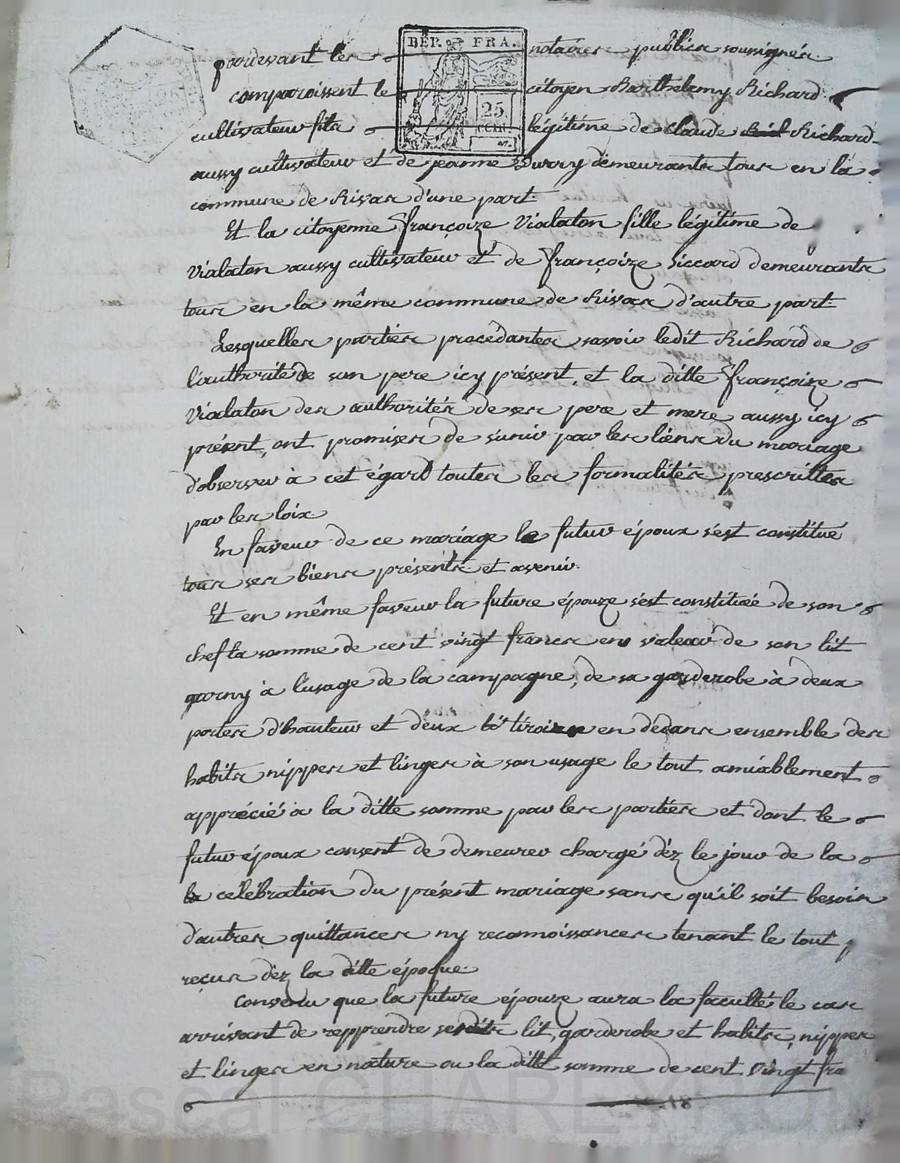 pardevant les notaires publics soussignés
BÉP. FRA.
25
CENT.
comparoissent le citoyen Barthelemy Richard
cultivateur fils légitime de claude Richard
aussy cultivateur et de jeanne Durry demeurants tous en la
commune de Rivas d'une part
Et la citoyenne françoize Vialaton fille légitime de
Vialaton aussy cultivateur et de françoize Siccard demeurants
tous en la même commune de Rivas d'autre part
Lesquelles parties procédantes savoir ledit Richard de
l'authorité de son pere icy présent, et la ditte françoize
Vialaton des authorités de ses pere et mere aussy icy
présent, ont promises de s'unir par les liens du mariage
d'observer à cet égard toutes les formalités prescrittes
par les loix
En faveur de ce mariage le futur époux s'est constitué
tous ses biens présents et avenir
Et en même faveur la future épouze s'est constituée de son
chef la somme de cent vingt francs en valeur de son lit
garny à l'usage de la campagne, de sa garderobe à deux
portes d'hauteur et deux tiroirs en dedans ensemble des
habits nippes et linges à son usage le tout amiablement
apprécié à la ditte somme par les parties et dont le
futur époux consent de demeurer chargé déz le jour de la
la célébration du présent mariage sans qu'il soit besoin
d'autres quittances ny reconnoissances tenant le tout p
reçus déz la ditte époque
Convenu que la future épouze aura la faculté le cas
arrivant de repprendre sesdits lit, garderobe et habits, nippes
et linges en nature ou la ditte somme de cent vingt fra
Pascal CHAREYRON